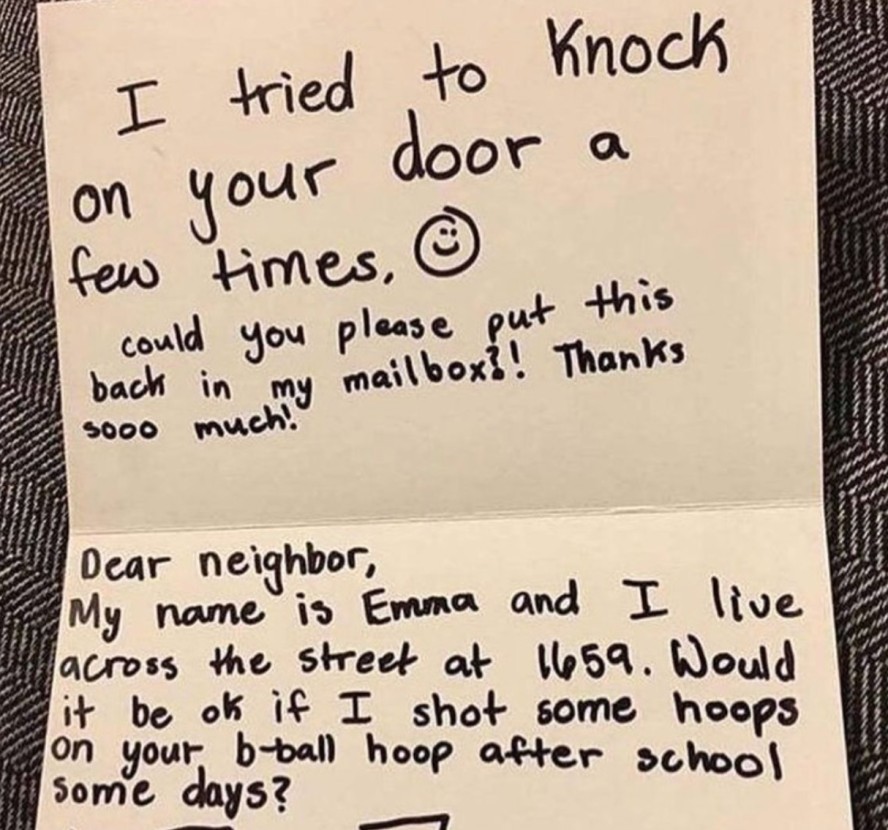 I tried to Knock
on your door a
few times.
could you please put this
back in my mailbox?! Thanks
sooo much!
Dear neighbor,
My name is Emma and I live
across the street at 1659. Would
it be ok if I shot some hoops
on your b-ball hoop after school
some days?